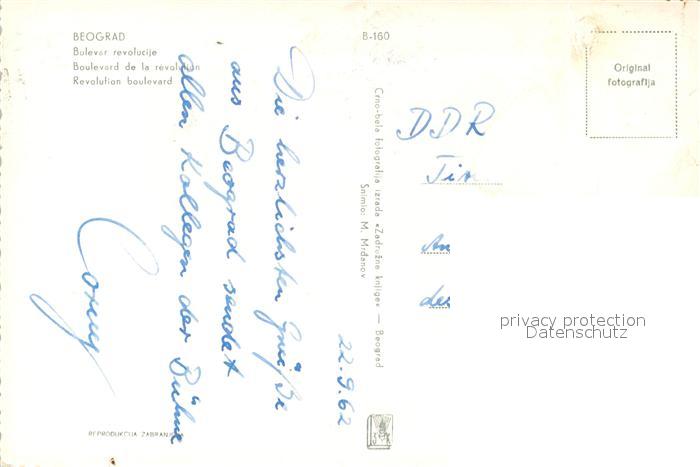 BEOGRAD
Bulevar revolucije
Boulevard de la révolution
Revolution boulevard
B-160
Original
fotografija
Die herzlichsten Grüße
aus Beograd sendet
allen Kollegen der Bühne
Conny
22.9.62
Crno-bela fotografija izrada «Zadružne knjige» — Beograd
Snimio: M. Mrđanov
DDR
An
der
privacy protection
Datenschutz
REPRODUKCIJA ZABRANJENA